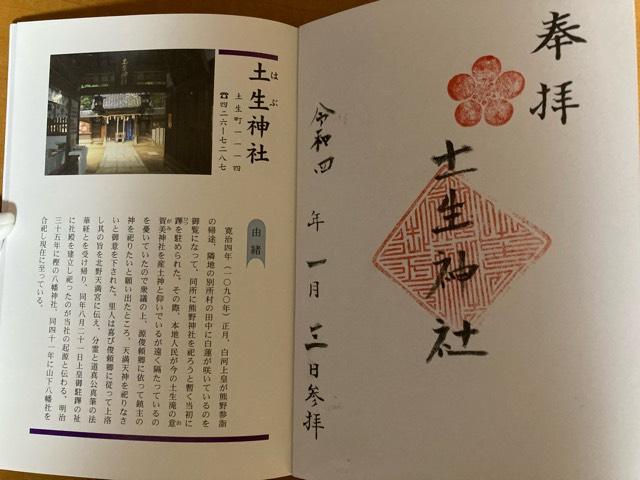 奉拝
土生神社
令和四年 一月 三日参拝
はぶ
土生神社
土生町一一一四
☎四二六ー七二八七
由緒
寛治四年(一〇九〇年)正月、白河上皇が熊野参詣
の帰途、隣地の別所村の田中に白蓮が咲いているのを
御覧になって、同所に熊野神社を祀ろうと暫く当初に
蹕を駐められた。その際、本地人民が今の土生滝の意
賀美神社を産土神と仰いでいるが遠く隔たっているの
を憂いていたので衆議の上、源俊頼卿に依って鎮主の
神を祀りたいと願い出たところ、天満天神を祀りなさ
いと御意を下された。里人は喜び俊頼卿に従って上洛
し其の旨を北野天満宮に伝え、分霊と道真公真筆の法
華経とを受け帰り、同年八月二十一日上皇御駐蹕の社
に社殿を建立し祀ったのが当社の起源と伝わる。明治
三十五年に樫の八幡神社、同四十一年に山下八幡社を
合祀し現在に至っている。